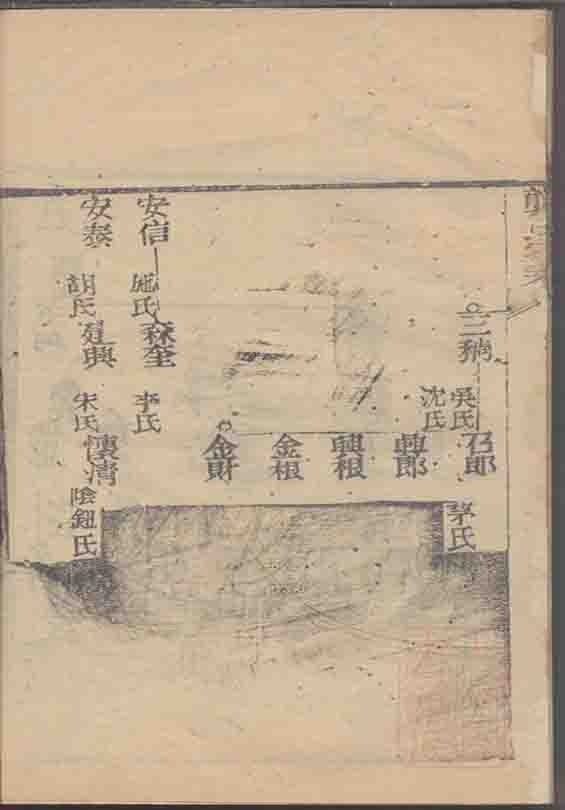 三
吳氏
沈氏
召郎
李氏
興郎
興根
金根
金財
安信
施氏
森奎
李氏
安泰
胡氏
建興
朱氏
懷清
陰鈕氏